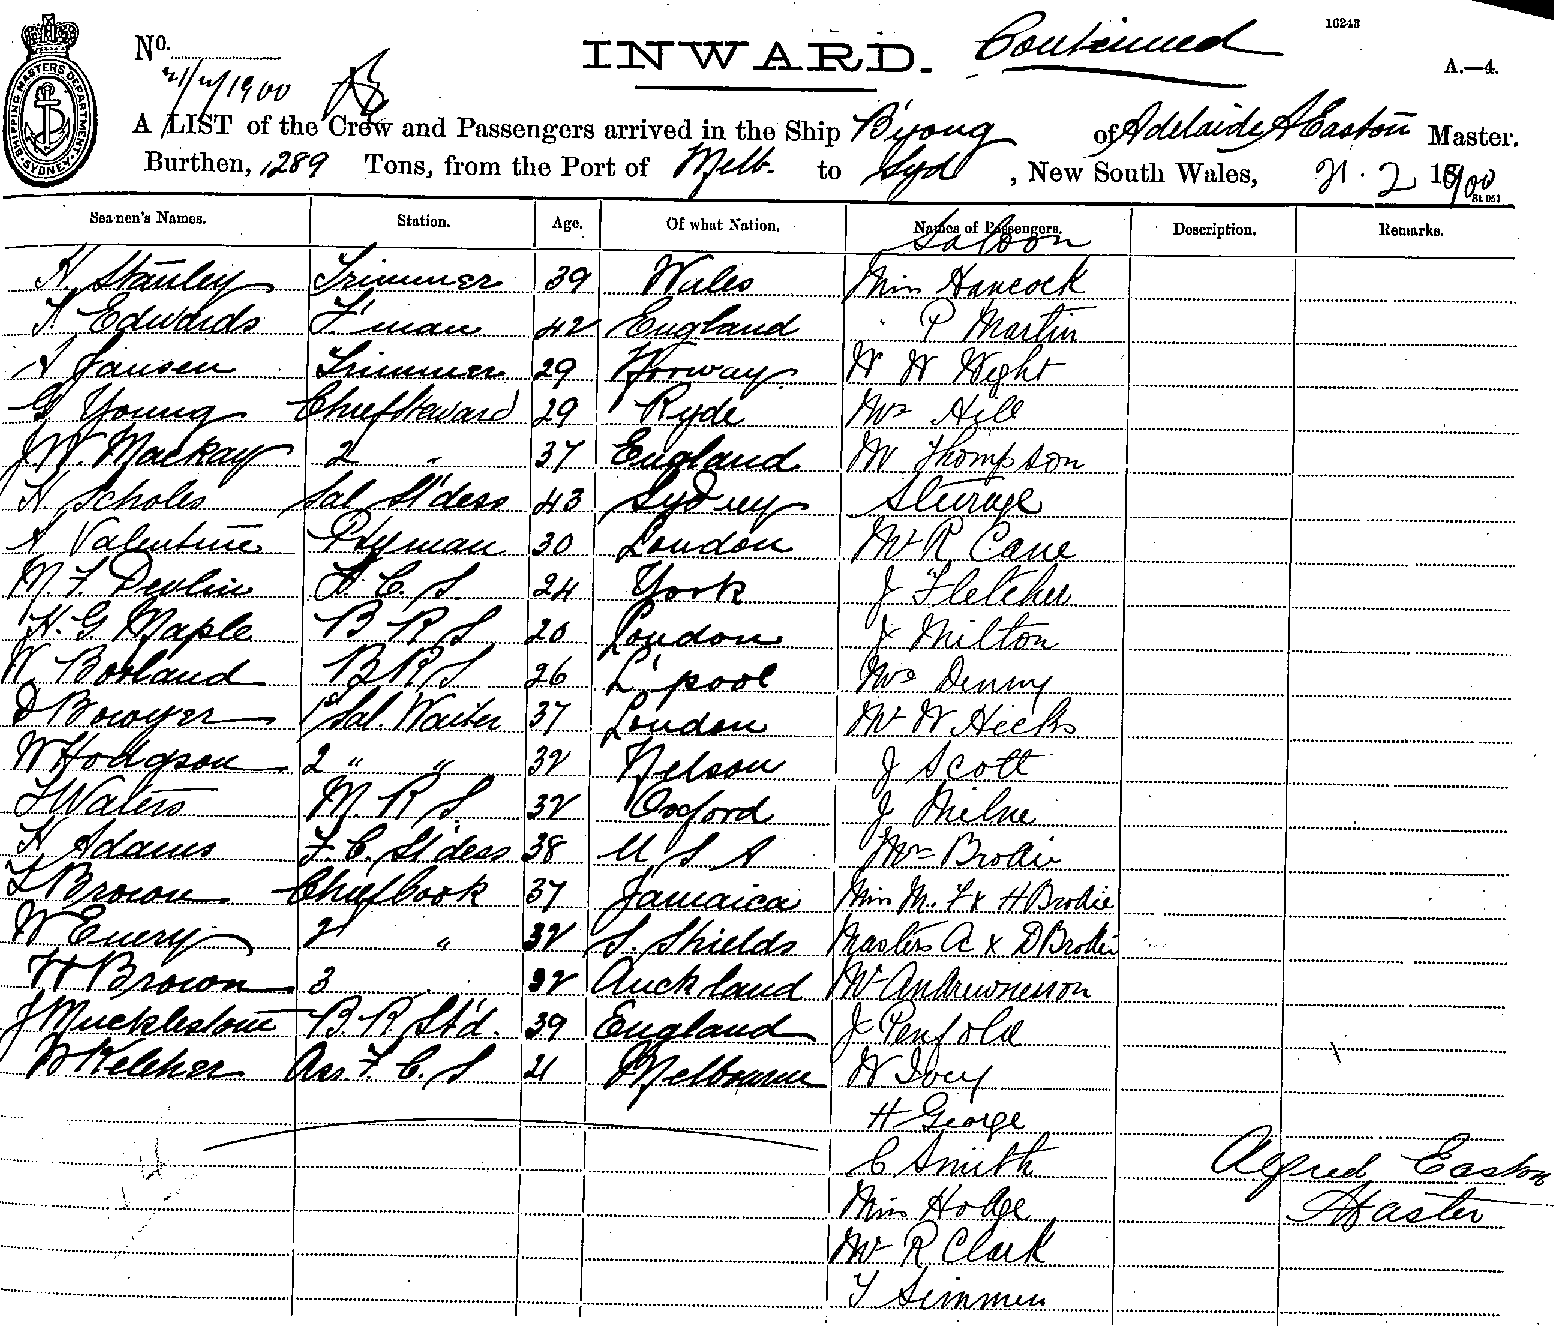 16243
No. 21/2/1900
INWARD. Continued
A.—4.
SHIPPING MASTERS DEPARTMENT SYDNEY
A LIST of the Crew and Passengers arrived in the Ship Bijong of Adelaide A Easton Master.
Burthen, 1289 Tons, from the Port of Melb. to Syd, New South Wales, 21.2 1900
Seamen's Names. Station. Age. Of what Nation. Names of Passengers. Description. Remarks.
Saloon
H Stanley Trimmer 39 Wales Miss Hancock
T. Edwards F'man 42 England " P Martin
A Jansen Trimmer 29 Norway W W Wight
G Young Chief Steward 29 Ryde Mrs Hill
J W. Mackay 2 " 37 England Mr Thompson
H. Scholes Sal. St'dess 43 Sydney Steerage
A Valentine P'tyman 30 London Mr R Cane
M. F. Devlin F. C. S. 24 York J Fletcher
H. G Maple B R S 20 London J Milton
W Borland B R S 26 L'pool Mrs Denny
D Bowyer 1st Sal. Waiter 37 London Mr W Hicks
W Hodgson 2 " " 32 Nelson J Scott
T Waters M. R S. 32 Oxford J Milne
H Adams F. C. St'dess 38 U S A Mrs Brodie
T Brown Chief Cook 37 Jamaica Miss M. F & H Brodie
W Emery 2 " 32 S. Shields Masters A & D Brodie
H Brown 3 32 Auckland Mr
J Mucklestone B. R St'd. 39 England J Penfold
W Kelcher Ass. F. C. S 21 Melbourne W Ivey
H George
C Smith
Alfred Easton
Miss Hodge
Master
Mr R Clark